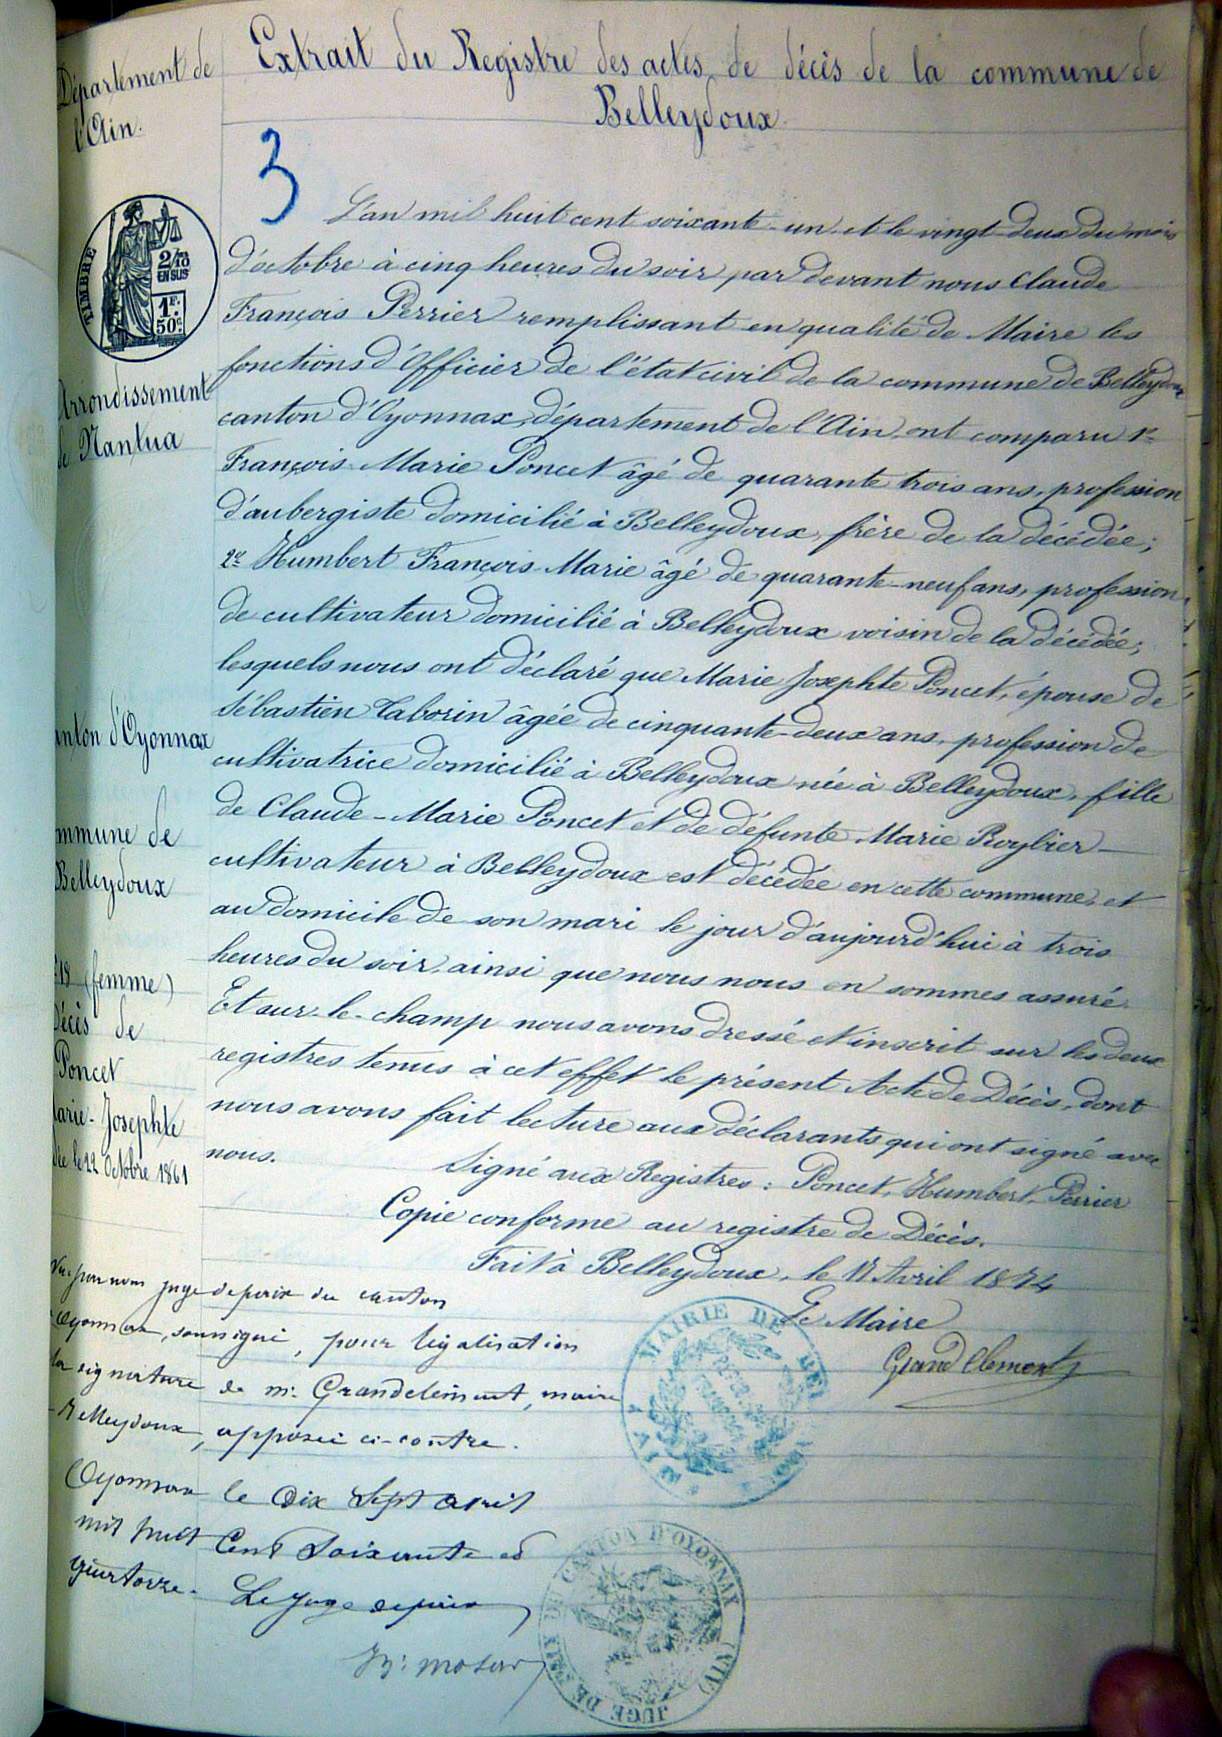 Département de
l'Ain.
Extrait du Registre des actes de décès de la commune de
Belleydoux.
3
TIMBRE
2/10
EN SUS
1F.
50c
Arrondissement
de Nantua
anton d'Oyonnax
ommune de
Belleydoux
19 (femme)
Décès de
Poncet
Marie-Josephte
le 22 Octobre 1861
L'an mil huit cent soixante-un et le vingt-deux du mois
d'octobre à cinq heures du soir, par devant nous Claude
François Perrier remplissant en qualité de Maire les
fonctions d'Officier de l'état civil de la commune de Belleydoux
canton d'Oyonnax, département de l'Ain, ont comparu 1er
François-Marie Poncet âgé de quarante trois ans, profession
d'aubergiste domicilié à Belleydoux, frère de la décédée;
2e Humbert François-Marie âgé de quarante-neuf ans, profession
de cultivateur domicilié à Belleydoux voisin de la décédée;
lesquels nous ont déclaré que Marie Josephte Poncet, épouse de
Sébastien Taborin âgée de cinquante-deux ans, profession de
cultivatrice domicilié à Belleydoux née à Belleydoux, fille
de Claude-Marie Poncet et de défunte Marie Roybier
cultivateur à Belleydoux est décédée en cette commune et
au domicile de son mari le jour d'aujourd'hui à trois
heures du soir, ainsi que nous nous en sommes assuré.
Et sur-le-champ nous avons dressé et inscrit sur les deux
registres tenus à cet effet le présent Acte de Décès, dont
nous avons fait lecture aux déclarants qui ont signé avec
nous.
Signé aux Registres: Poncet, Humbert, Perrier
Copie conforme au registre de Décès.
Fait à Belleydoux, le 17 Avril 1874
Le Maire
Grand Clement
Vu par nous juge de paix du canton
Oyonnax, soussigné, pour légalisation
la signature de Mr. Grandclément, maire
Belleydoux, apposée ci-contre.
Oyonnax le dix sept avril
mil huit Cent Soixante et
quatorze.
Le Juge de paix
MAIRIE DE BELLEYDOUX (AIN)
JUGE DE PAIX DU CANTON D'OYONNAX (AIN)